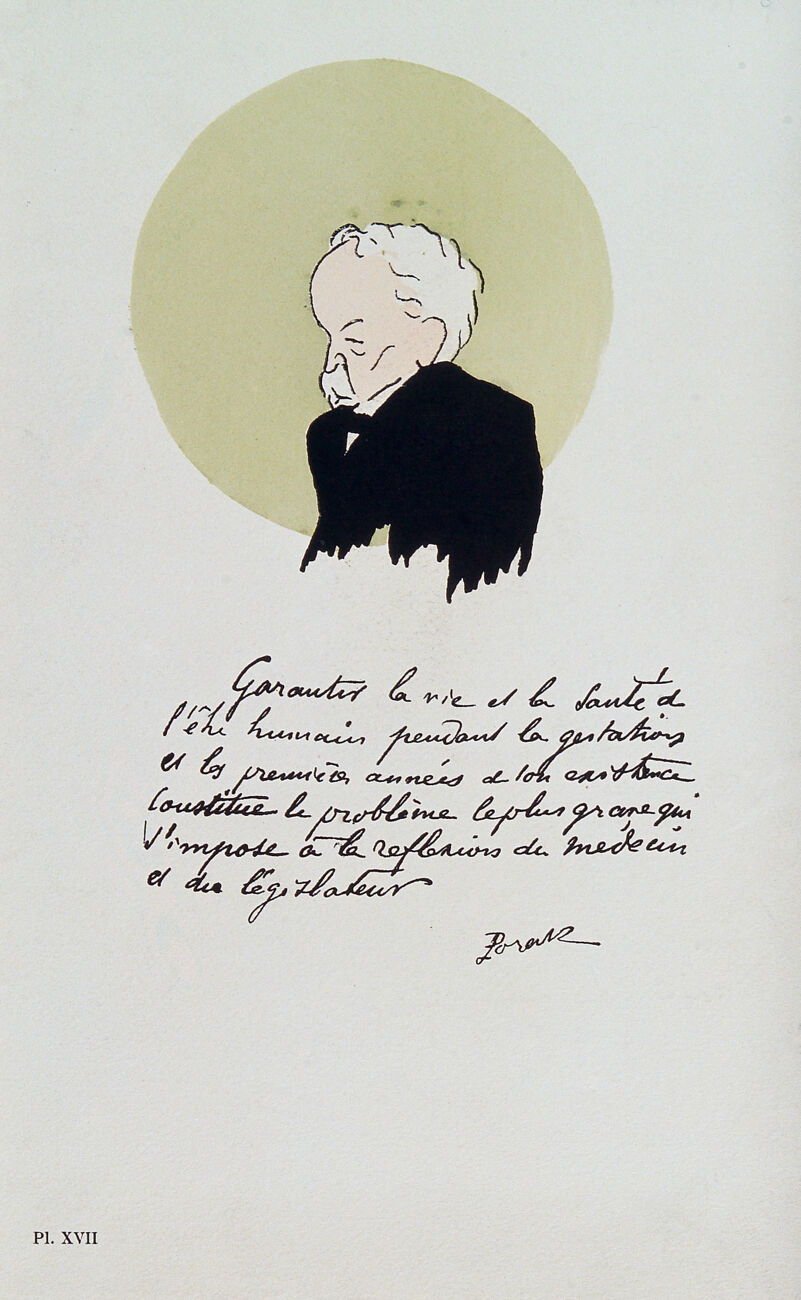 Garantir la vie et la Santé d
l'être humain pendant la gestation
et les premières années de son existence
Constitue le problème le plus grave qui
s'impose à la reflexion du médecin
et du législateur
Porak
Pl. XVII